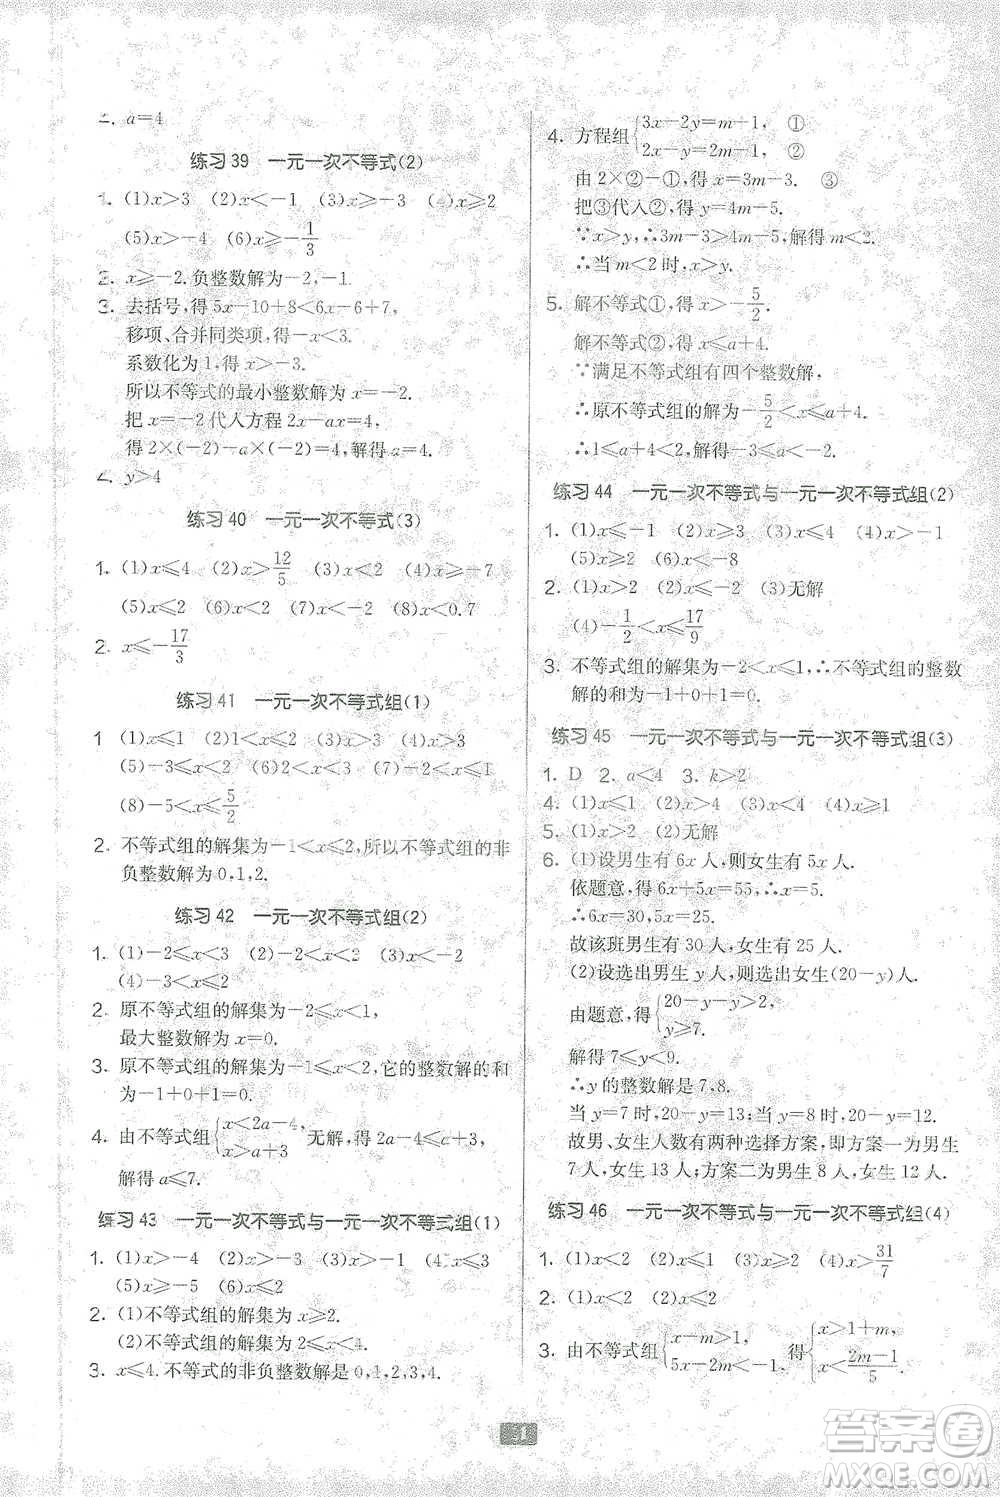 a=4
练习39 一元一次不等式(2)
1. (1)x>3 (2)x<-1 (3)x≥-3 (4)x≥2
(5)x>-4 (6)x≥-1/3
2. x≥-2.负整数解为-2,-1.
3. 去括号,得5x-10+8<6x-6+7,
移项、合并同类项,得-x<3.
系数化为1,得x>-3.
所以不等式的最小整数解为x=-2.
把x=-2代入方程2x-ax=4,
得2×(-2)-a×(-2)=4,解得a=4.
4. y>4
练习40 一元一次不等式(3)
1. (1)x≤4 (2)x>12/5 (3)x<4 (4)x≥-7
(5)x≤2 (6)x<2 (7)x<-2 (8)x<0.7
2. x≤-17/3
练习41 一元一次不等式组(1)
1 (1)x≤1 (2)1<x≤2 (3)无解 (4)x>3
(5)-3<x≤2 (6)0<x<2 (7)-2<x≤1
(8)-5<x≤5/2
2. 不等式组的解集为-1<x≤2,所以不等式组的非
负整数解为0,1,2.
练习42 一元一次不等式组(2)
1. (1)-2≤x<3 (2)-2<x<3 (3)无解
(4)-3<x≤2
2. 原不等式组的解集为-2≤x<1,
最大整数解为x=0.
3. 原不等式组的解集为-1≤x<2,它的整数解的和
为-1+0+1=0.
4. 由不等式组{x<2a-4, x>a+3 无解,得2a-4≤a+3,
解得a≤7.
练习43 一元一次不等式与一元一次不等式组(1)
1. (1)x>-4 (2)x>2 (3)x>-1 (4)x≤1
(5)x≥-5 (6)x≤2
2. (1)不等式组的解集为x≥2.
(2)不等式组的解集为2≤x<4.
3. x≤4.不等式的非负整数解是0,1,2,3,4.
4. 方程组{3x-2y=m-1, ① 2x-y=2m-1, ②
由2×②-①,得x=3m-3. ③
把③代入②,得y=4m-5.
∵x>y,∴3m-3>4m-5,解得m<2.
∴当m<2时,x>y.
5. 解不等式①,得x>-5/2.
解不等式②,得x≤a+4.
∵满足不等式组有四个整数解,
∴原不等式组的解为-5/2<x≤a+4.
∴1≤a+4<2,解得-3≤a<-2.
练习44 一元一次不等式与一元一次不等式组(2)
1. (1)x≤-1 (2)x≥3 (3)x≤4 (4)x>-1
(5)x≥2 (6)x<-8
2. (1)x>2 (2)x≤-2 (3)无解
(4)-1/2<x≤17/9
3. 不等式组的解集为-2<x≤1,∴不等式组的整数
解的和为-1+0+1=0.
练习45 一元一次不等式与一元一次不等式组(3)
1. D 2. a<4 3. k>2
4. (1)x≤1 (2)x>4 (3)x<4 (4)x≥1
5. (1)x>2 (2)无解
6. (1)设男生有6x人,则女生有5x人.
依题意,得6x+5x=55,∴x=5.
∴6x=30,5x=25.
故该班男生有30人,女生有25人.
(2)设选出男生y人,则选出女生(20-y)人.
由题意,得{20-y-y>2, y≥7.
解得7≤y<9.
∴y的整数解是7,8.
当y=7时,20-y=13;当y=8时,20-y=12.
故男、女生人数有两种选择方案,即方案一为男生
7人,女生13人;方案二为男生8人,女生12人.
练习46 一元一次不等式与一元一次不等式组(4)
1. (1)x<2 (2)x≤1 (3)x≥2 (4)x>31/7
2. (1)x<2 (2)x≤2
3. 由不等式组{x-m>1, 5x-2m<-1, 得{x>1+m, x<(2m-1)/5.
答案圈
MXQE.COM